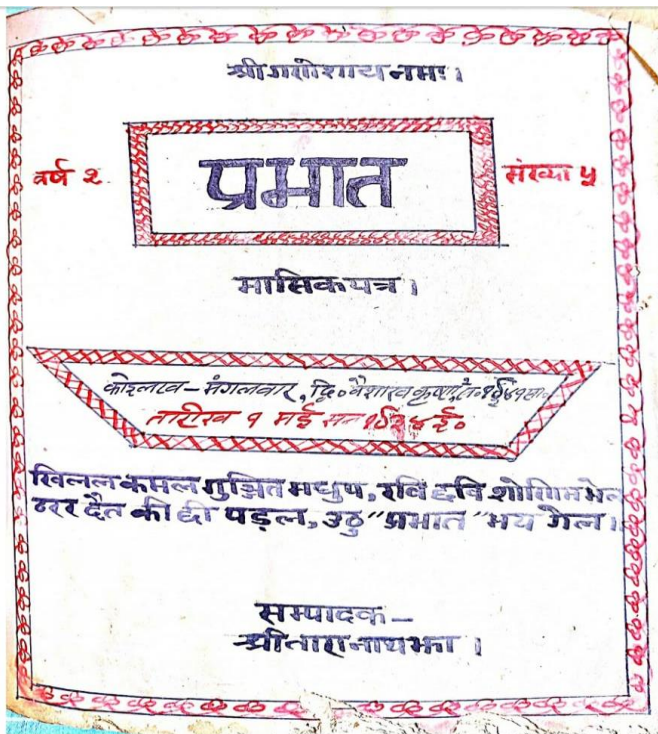 श्रीगणेशाय नमः।
वर्ष २
प्रभात
संख्या ५
मासिक पत्र।
कोइलख – मंगलवार, द्वि० वैशाख कृष्ण
तारीख १ मई सन १९३४ ई०
खिलल कमल गुञ्जित मधुप, रवि छवि शोणित भेल
ठरर दैत की छी पड़ल, उठु "प्रभात" भय गेल।
सम्पादक –
श्रीतारानाथझा।